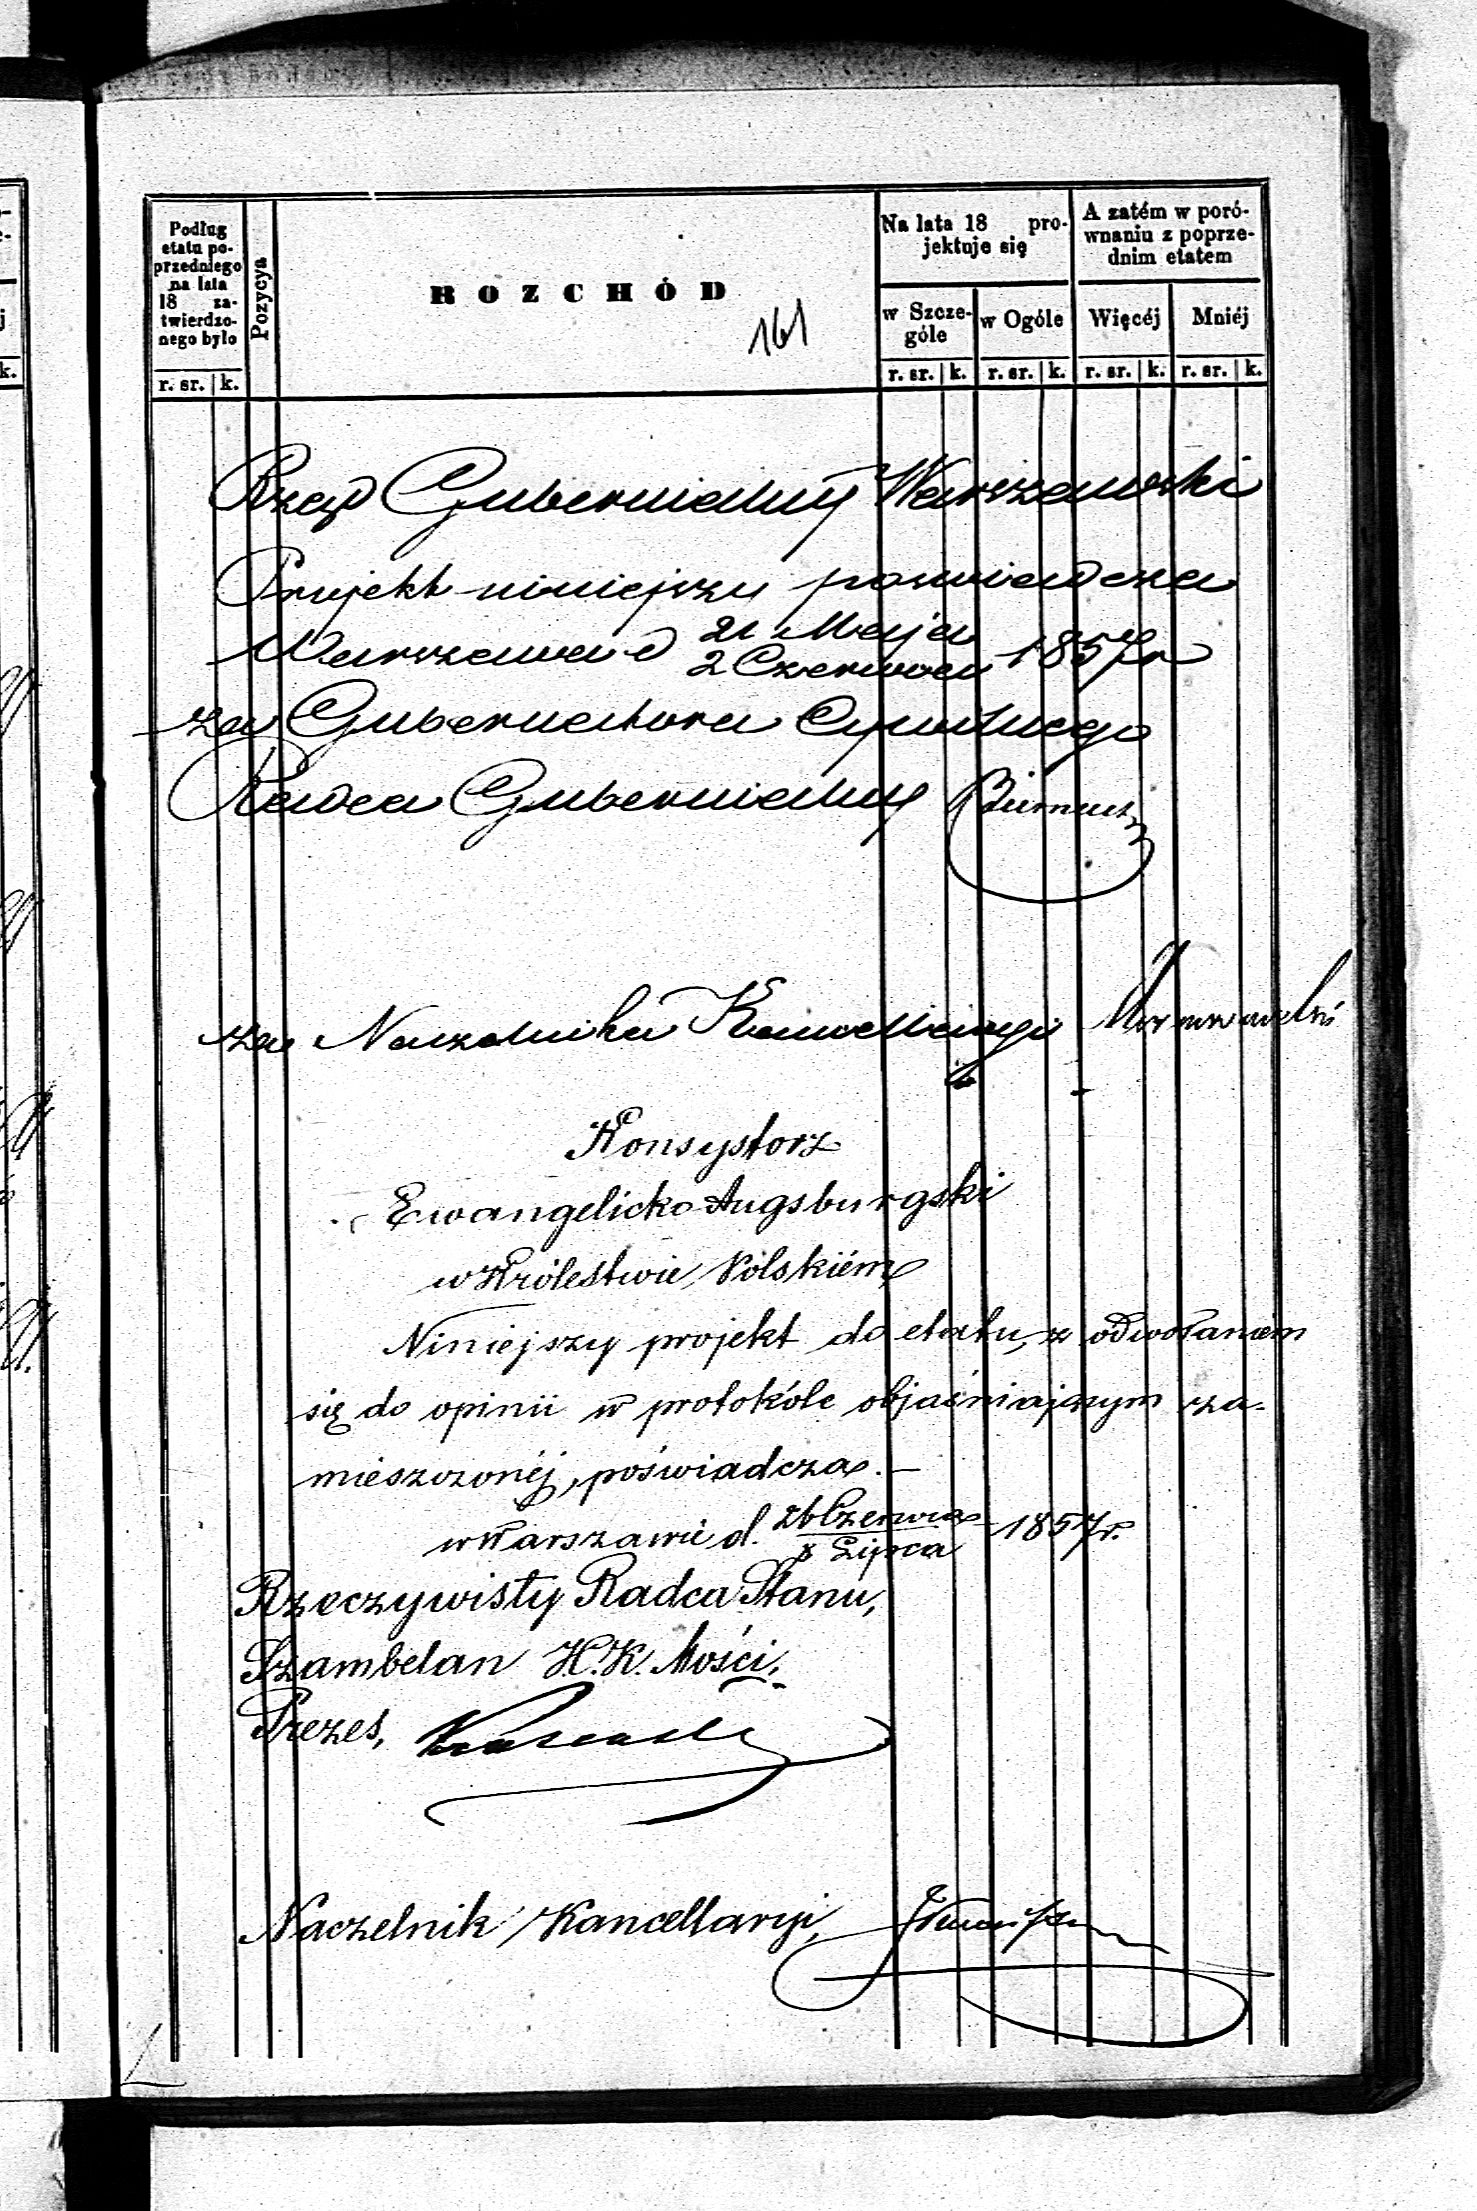 Podług
etatu po-
przedniego
na lata
18 za-
twierdzo-
nego było
r. sr. k.
Pozycya
ROZCHÓD
161
Na lata 18 pro-
jektuje się
w Szcze-
góle
w Ogóle
r. sr. k. r. sr. k.
A zatém w poró-
wnaniu z poprze-
dnim etatem
Więcéj Mniéj
r. sr. k. r. sr. k.
Rząd Gubernialny Warszawski
Projekt niniejszy poswiadcza
Warszawa d 21 Maja
2 Czerwca 1857 r
za Gubernatora Cywilnego
Radca Gubernialny
za Naczelnika Kancellaryi
Konsystorz
Ewangelicko-Augsburgski
w Królestwie Polskiém
Niniejszy projekt do etatu, z odwołaniem
się do opinii w protokóle objaśniającym za-
mieszczonéj, poświadcza.-
w Warszawie d. 26 Czerwca
8 Lipca 1857 r.
Rzeczywisty Radca Stanu,
Szambelan J.C.K. Mości,
Prezes,
Naczelnik Kancellaryi,